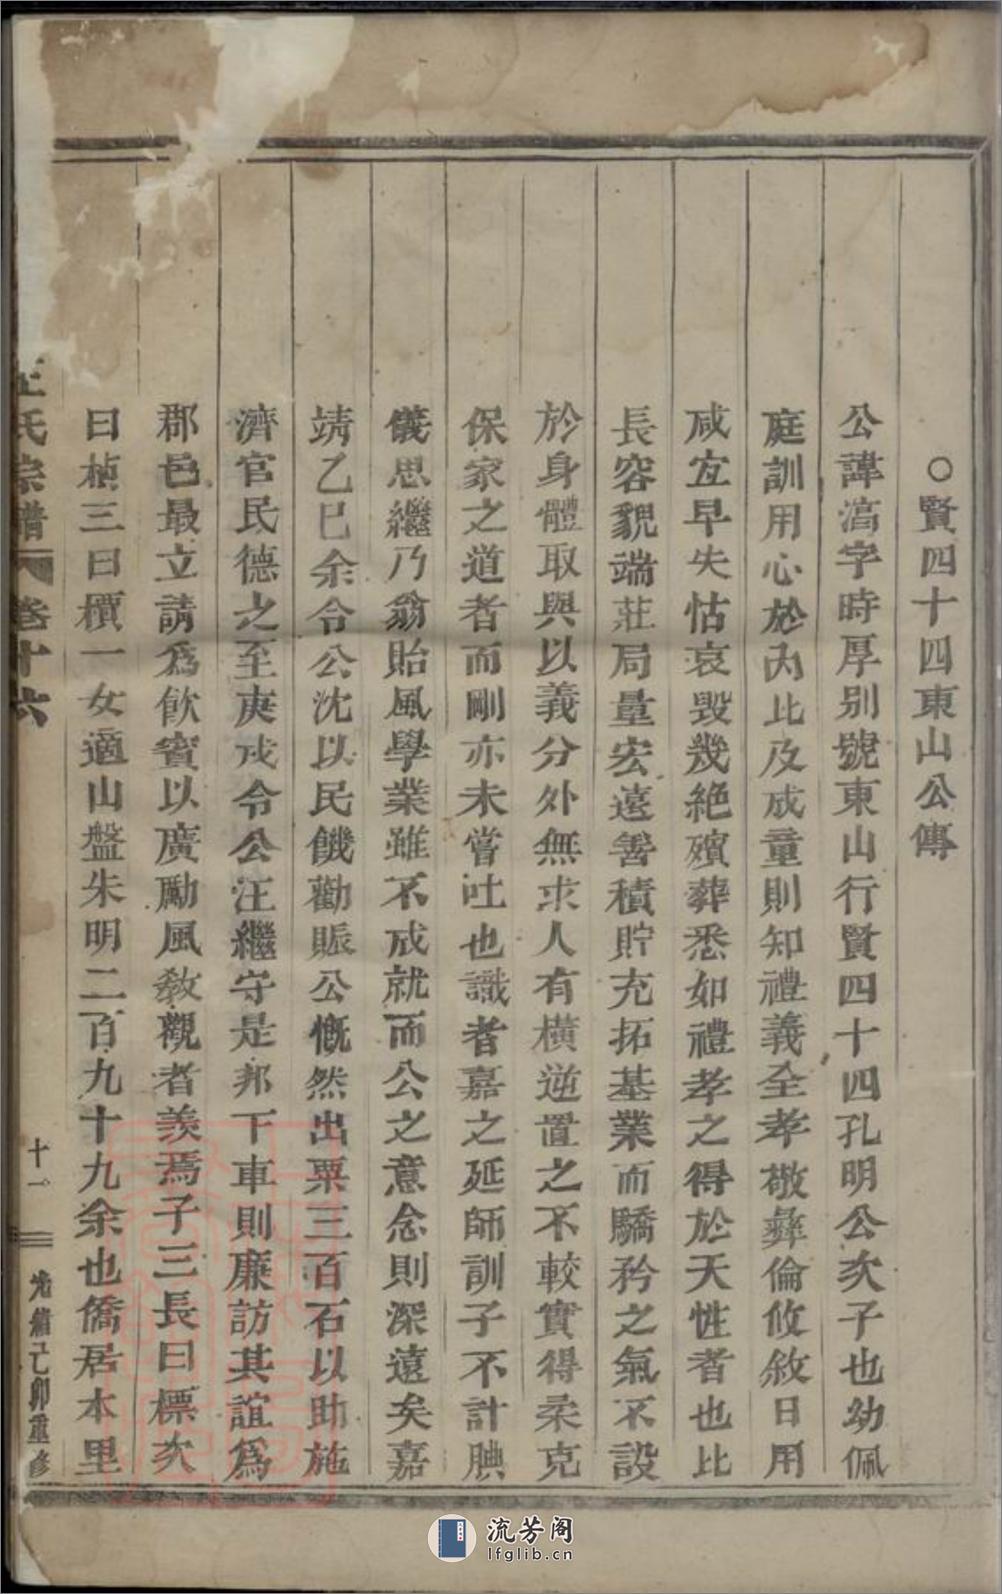 ○賢四十四東山公傳
公諱滈字時厚別號東山行賢四十四孔明公次子也幼佩
庭訓用心於內比及成童則知禮義全孝敬彝倫攸敘日用
咸宜早失怙哀毀幾絕殯葬悉如禮孝之得於天性者也比
長容貌端莊局量宏遠善積貯充拓基業而驕矜之氣不設
於身體取與以義分外無求人有橫逆置之不較實得柔克
保家之道者而剛亦未嘗吐也識者嘉之延師訓子不計腆
儀思繼乃翁貽風學業雖不成就而公之意念則深遠矣嘉
靖乙巳余令公沈以民饑勸賑公慨然出粟三百石以助施
濟官民德之至庚戌令公汪繼守是邦下車則廉訪其誼為
郡邑最立請為飲賓以廣勵風教觀者羨焉子三長曰標次
曰楨三曰櫝一女適山盤朱明二百九十九余也僑居本里
王氏宗譜 卷十六
十一
光緒己卯重修
流芳阁
lfglib.cn